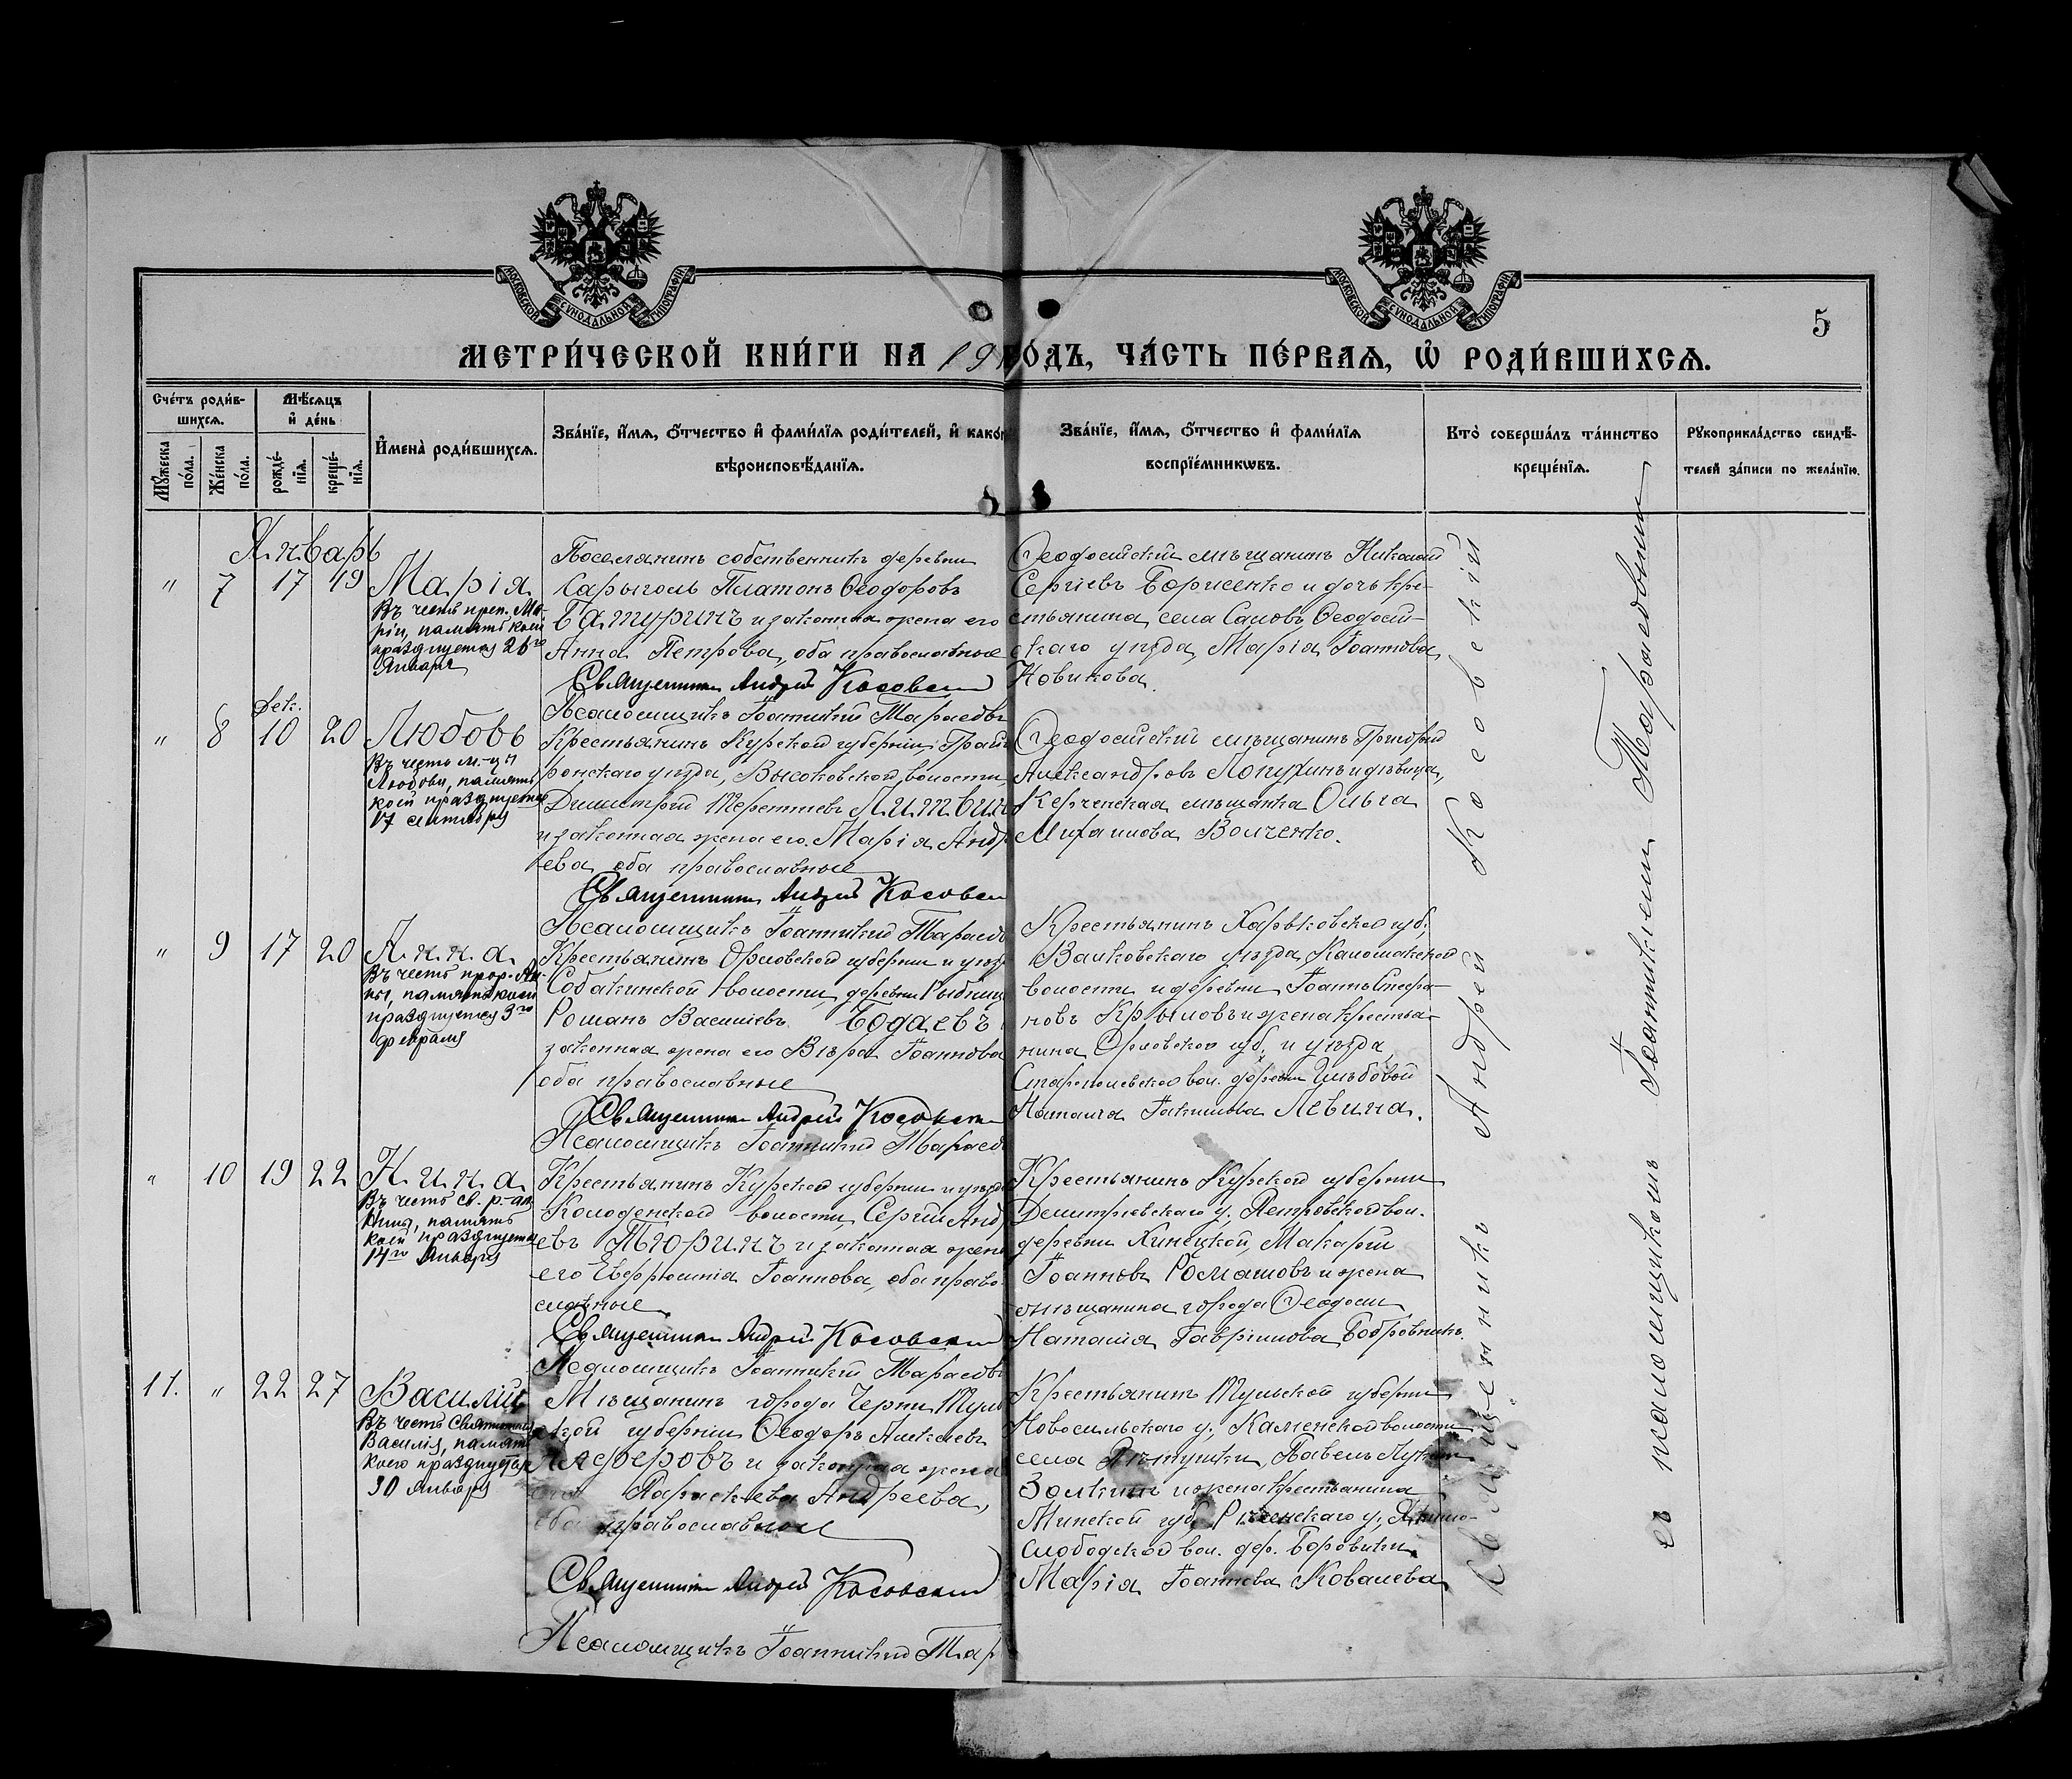 МОСКОВСКОЙ СѴНОДАЛЬНОЙ ТИПОГРАФІИ
МОСКОВСКОЙ СѴНОДАЛЬНОЙ ТИПОГРАФІИ
5
МЕТРИ́ЧЕСКОЙ КНИ́ГИ НА 19 ГО́ДЪ, ЧА́СТЬ ПЕ́РВАЯ, Ѡ҆ РОДИ́ВШИХСЯ.
Сче́тъ роди́вшихся.
Мѣ́сяцъ и҆ де́нь
Мꙋ́жеска по́ла.
Же́нска по́ла.
рожде́нїѧ.
креще́нїѧ.
И҆мена̀ роди́вшихсѧ.
Зва́нїе, и҆́мѧ, ѻ҆́тчество и҆ фами́лїѧ роди́телей, и҆ како́г
вѣроисповѣ́данїѧ.
Зва́нїе, и҆́мѧ, ѻ҆́тчество и҆ фами́лїѧ
воспрїе́мникѡвъ.
Кто̀ соверша́лъ та́инство
креще́нїѧ.
Рꙋкоприкла́дство свидѣ́-
телей за́писи по жела́нїю.
Январь
" 7 17 19 Марія
Въ честь преп. Ма-
ріи, память коей
празднуется 26го
Января
Поселянинъ собственникъ деревни
Сарыголь Платонъ Ѳеодоровъ
Батуринъ и законная жена его
Анна Петрова, оба православные
Священникъ Андрей Косовский
Псаломщикъ Іоанникий Тарасевъ
Ѳеодосійский мѣщанинъ Николай
Сергіевъ Борисенко и дочь кре-
стьянина села Салов Ѳеодосій-
скаго уѣзда, Марія Іоаннова
Новикова.
Дек.
" 8 10 20 Любовь
Въ честь м-цы
Любови, память
коей празднуется
17 сентября
Крестьянинъ Курской губерніи Грайв
ронскаго уѣзда, Высоковской волости,
Димитрий Терентиевъ Литвин
и законная жена его Марія Андр
еева, оба православные
Священникъ Андрей Косовск
Псаломщикъ Іоанникий Тарасев
Ѳеодосійский мѣщанинъ Григорий
Александровъ Лопухинъ и дѣвица,
Керченская мѣщанка Ольга
Михаилова Волченко.
" 9 17 20 Анна
Въ честь прор. Ан-
ны, память коей
празднуется 3го
февраля
Крестьянинъ Орловской губернии и уѣзд
Собакинской волости, деревни Рыбниц
Романъ Василиевъ Бодаевъ
законная жена его Вѣра Іоаннова
оба православные
Священникъ Андрей Косовск
Псаломщикъ Іоанникий Тарасев
Крестьянинъ Харьковской губ.
Валковского уѣзда, Коломакской
волости и деревни Іоаннъ Стефа-
новъ Крыловъ и жена крестья-
нина Орловской губ. и уѣзда
вол. деревни
Наталія Іакимова Левина.
" 10 19 22 Нина
Въ честь св. р-ап
Нины, память
коей празднуется
14го Января
Крестьянинъ Курской губернии и уѣзда
Колоденской волости, Сергий Андр
евъ Тюринъ и законная жена
его Евфросинія Іоаннова, оба право-
славные
Священникъ Андрей Косовский
Псаломщикъ Іоанникий Тарасевъ
Крестьянинъ Курской губернии
Димитриевскаго у. Петровской вол.
деревни Макарий
Іоанновъ Ромашовъ и жена
мѣщанина города Ѳеодосии
Наталія Гавриилова Бобровникъ.
11. " 22 27 Василий
Въ честь Святителя
Василія, память
коего празднуется
30 Января
Мѣщанинъ города Черни Тул
ской губерніи Ѳеодоръ Алексіевъ
и законная жена
его Параскева Андреева,
оба православные
Священникъ Андрей Косовский
Псаломщикъ Іоанникий Тар
Крестьянинъ Тульской губерни
Новосильскаго у. Каменской волости
села Павелъ
и жена крестьянина
Минской губ. Рѣчицкаго у,
слободской вол. дер. Боровики
Марія Іоаннова Ковалева
Священникъ Андрей Косовскій
съ псаломщикомъ Іоанникіемъ Тарасевымъ